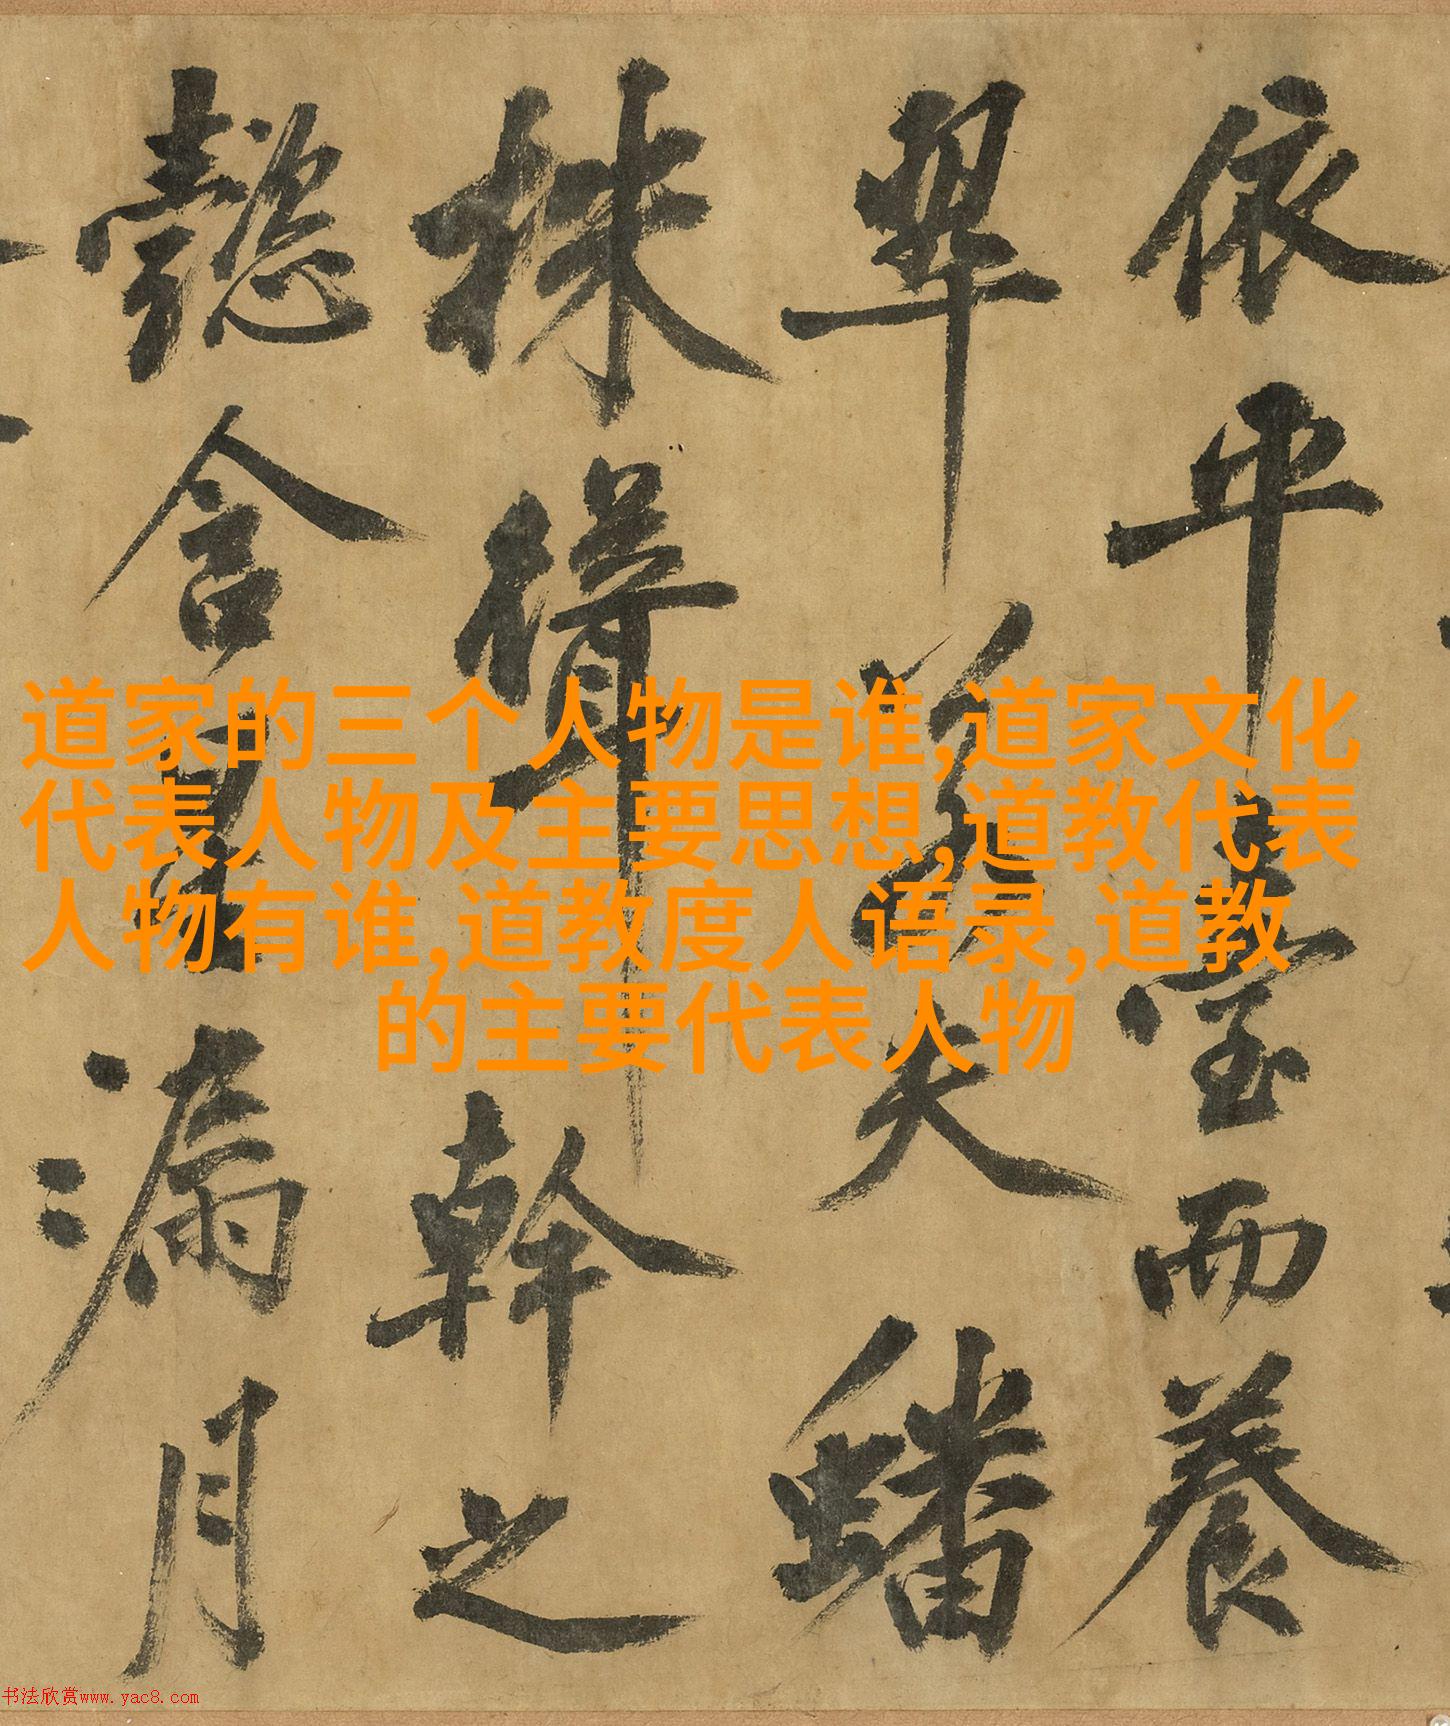 依平臺而養
翠若夫蟠
株聳幹之
懿含星漏月
道家的三个人物是谁,道家文化
代表人物及主要思想,道教代表
人物有谁,道教度人语录,道教
的主要代表人物
书法欣赏www.yac8.com